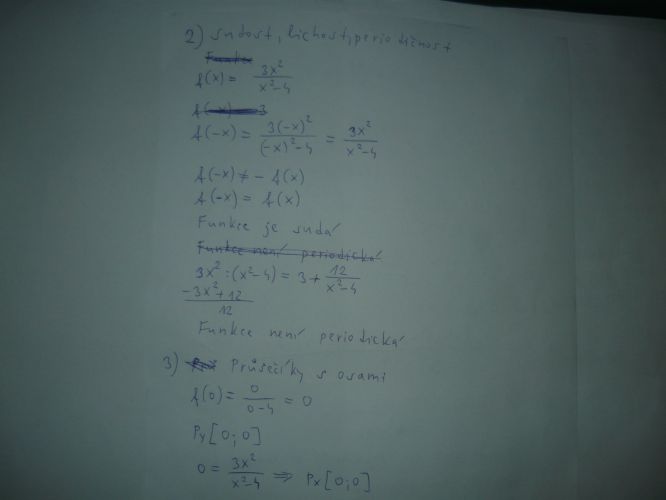 2) sudost, lichost, periodičnost
Funkce
f(x) = 3x²/(x²-4)
f(-x) = 3
f(-x) = 3(-x)²/((-x)²-4) = 3x²/(x²-4)
f(-x) ≠ - f(x)
f(-x) = f(x)
Funkce je sudá
Funkce není periodická
3x² : (x²-4) = 3 + 12/(x²-4)
-3x²+12
12
Funkce není periodická
3) Průsečíky s osami
f(0) = 0/(0-4) = 0
Py[0;0]
0 = 3x²/(x²-4) ⇒ Px[0;0]